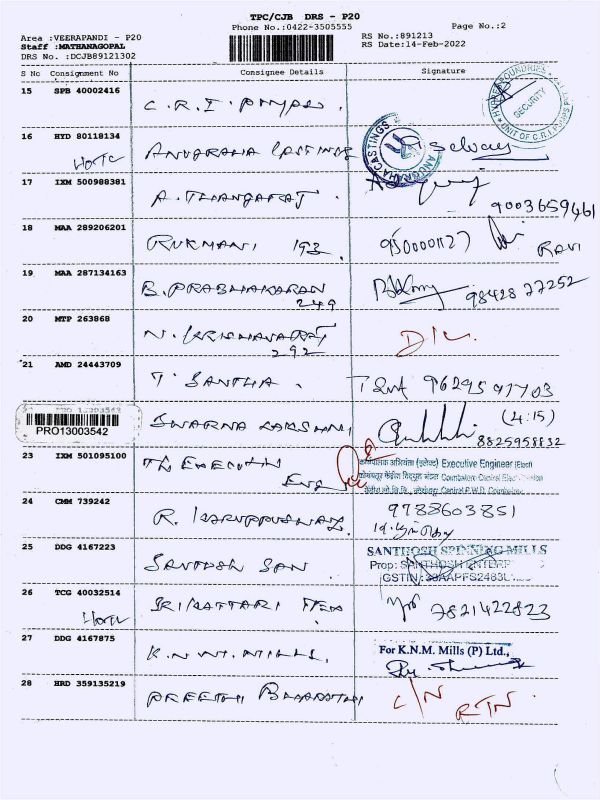 TPC/CJB DRS - P20
Phone No.:0422-3505555
Page No.:2
Area :VEERAPANDI - P20
Staff :MATHANAGOPAL
DRS No. :DCJB89121302
RS No.:891213
RS Date:14-Feb-2022
S No Consignment No Consignee Details Signature
15 SPB 40002416 C.R.I. PUMPS.
SECURITY
UNIT OF C.R.I. PUMPS
16 HYD 80118134 ANUGRAHA CASTINGS
ANUGRAHA CASTINGS
17 IXM 500988381 A. THANGARAJ.
9003659461
18 MAA 289206201 RUKMANI 193. 9500001127 RAVI
19 MAA 287134163 B. PRABHAKARAN
249 98428 77252
20 MTP 263868 N. KRISHNARAJ
292 D/L
21 AMD 24443709 T. SANTHA. 9629591703
PRO13003542 SWARNA LAKSHMI (4:15)
8825958832
23 IXM 501095100 TH EXECUTIVE
Eng
कार्यपालक अभियंता (इलेक्ट) Executive Engineer (Elect)
Coimbatore Central Elect Division
24 CMM 739242 R. KARUPPUSWAMY. 9788603851
25 DDG 4167223 SANTHOSH SAN
SANTHOSH SPINNING MILLS
Prop: SANTHOSH ENTERP
26 TCG 40032514 SRI KATTARI TEX 7821422823
27 DDG 4167875 K.N.M. MILLS.
For K.N.M. Mills (P) Ltd.,
28 HRD 359135219 PREETHI BHARATHI C/N RTN.